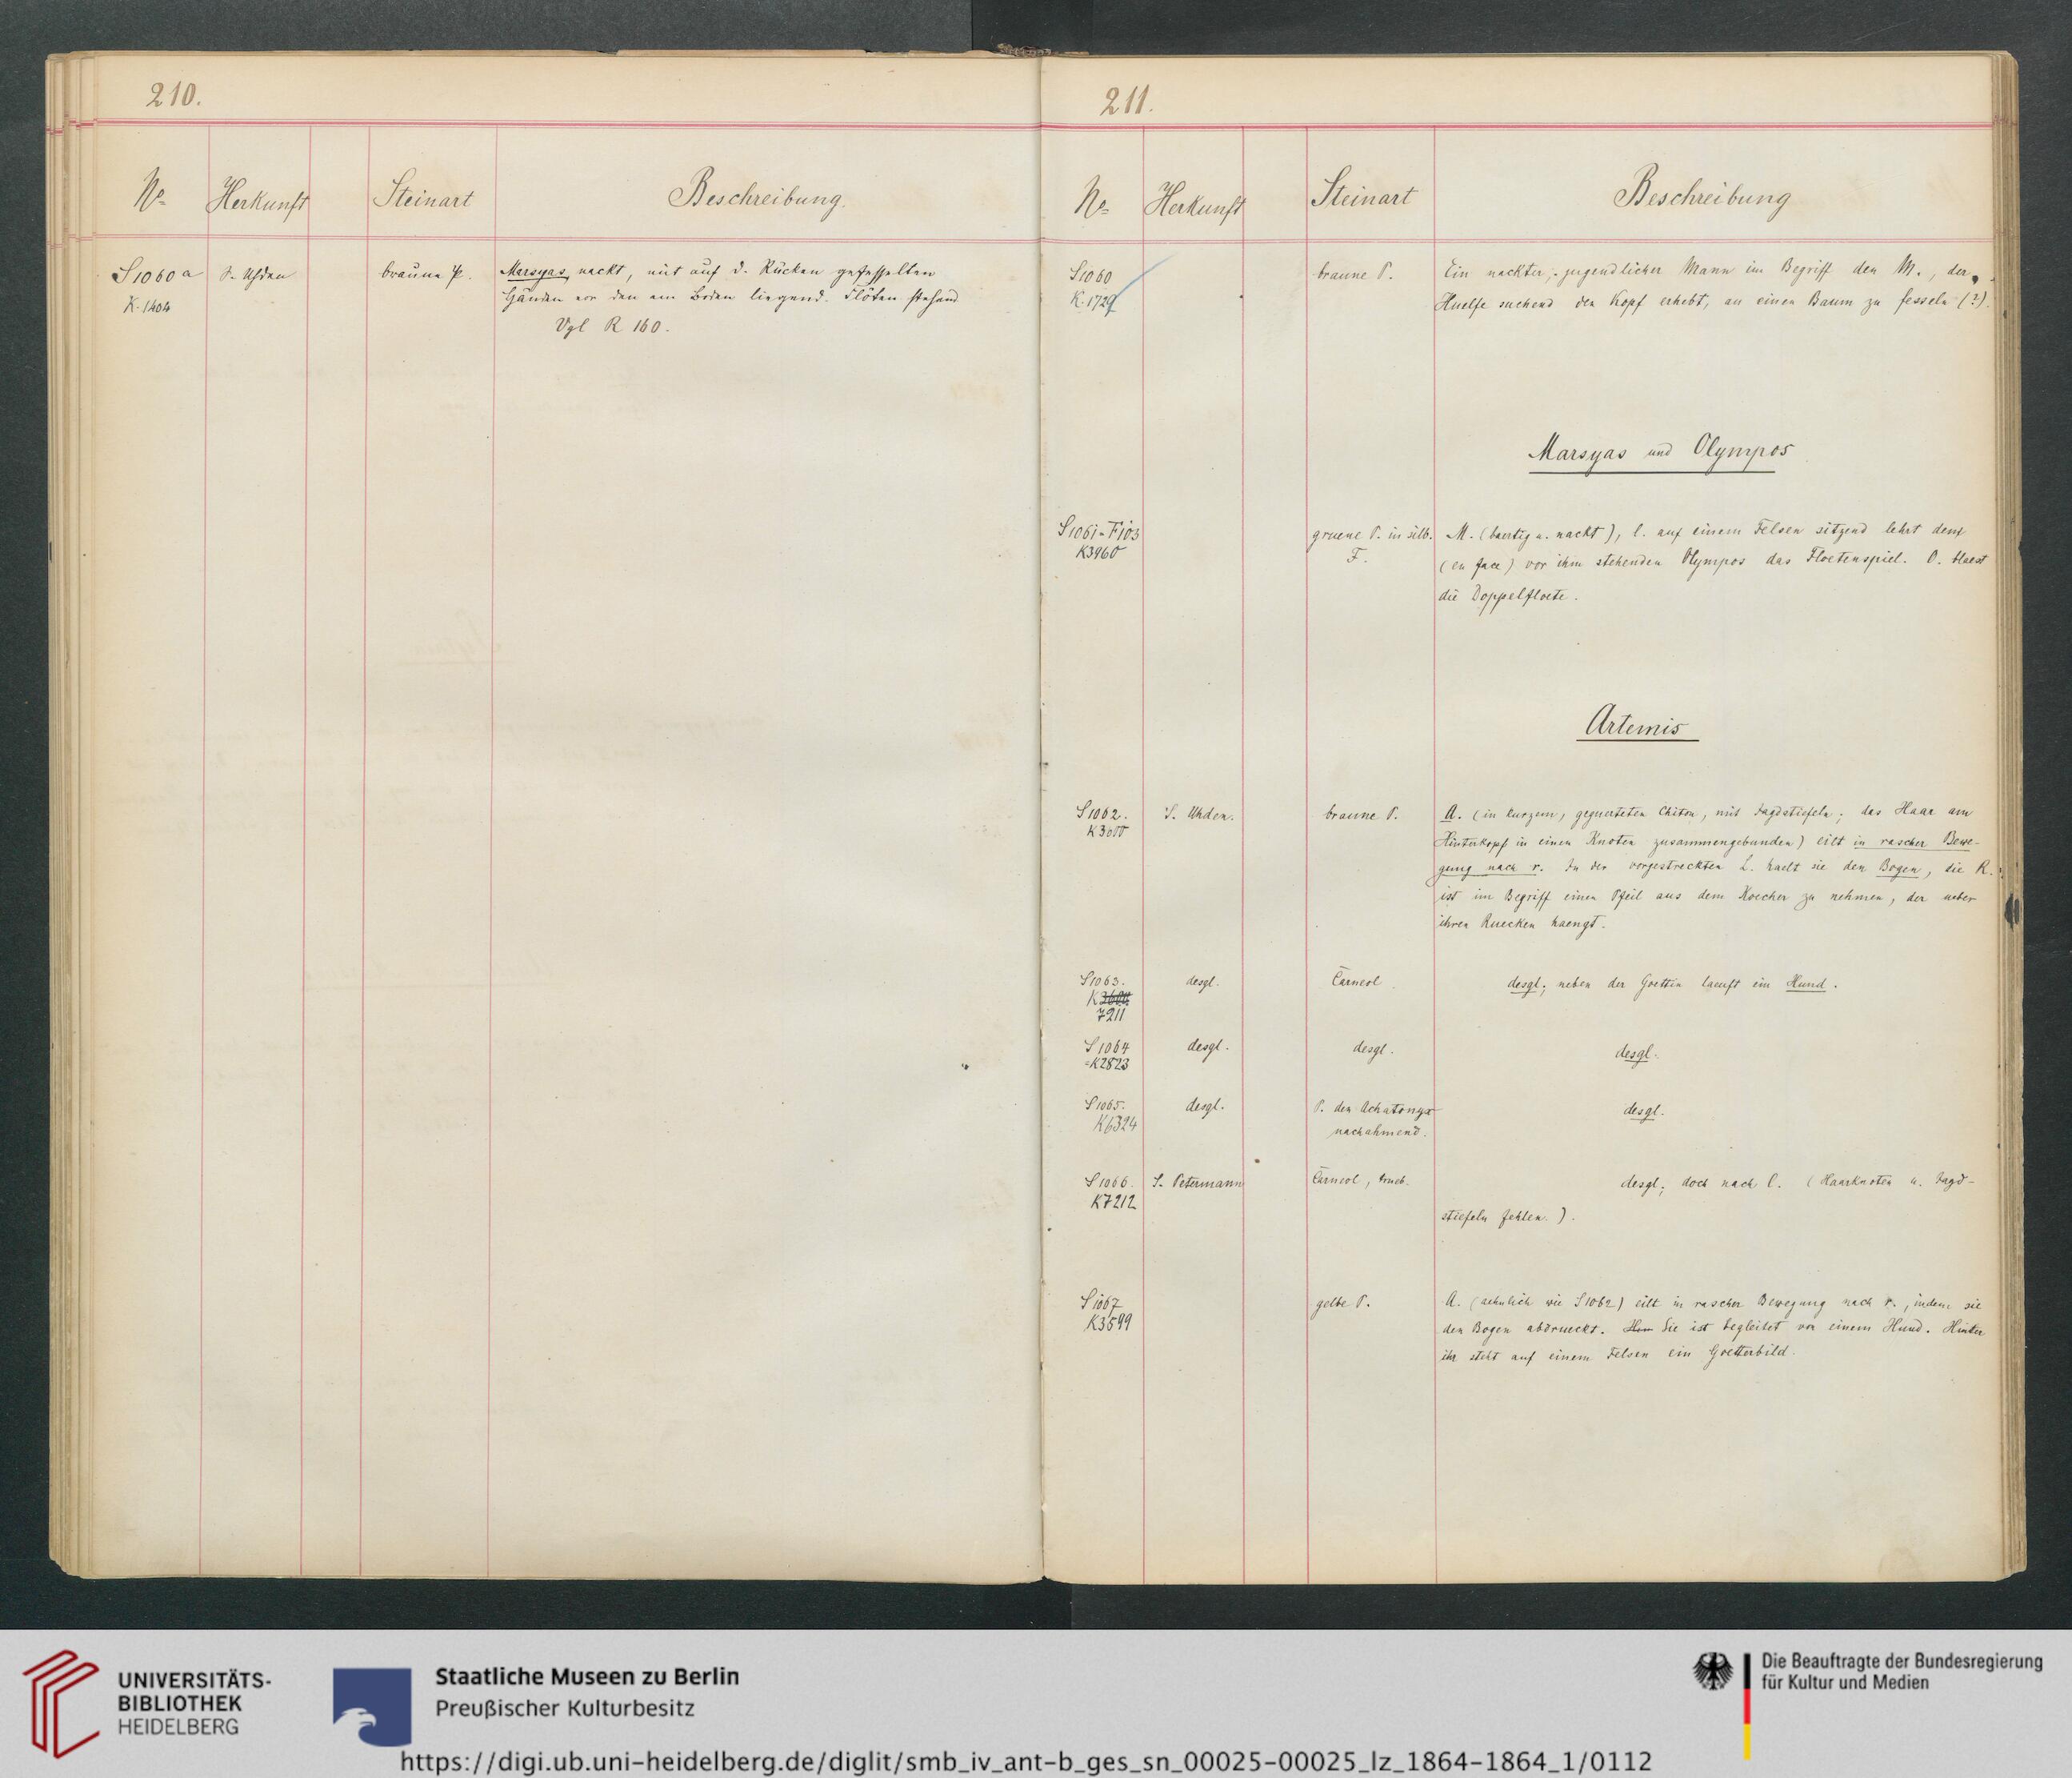 210.
No Herkunft Steinart Beschreibung.
S1060a S. Uhden braune P. Marsyas, nackt, mit auf d. Rücken gefesselten
K.1404 Händen vor den am Boden liegend. Flöten stehend
Vgl R 160.
211.
No Herkunft Steinart Beschreibung
S1060 braune P. Ein nackter, jugendlicher Mann im Begriff den M., der
K.1729 Huelfe suchend den Kopf erhebt, an einen Baum zu fesseln (?).
Marsyas und Olympos
S1061=F103 gruene P. in silb. M. (baertig u. nackt), l. auf einem Felsen sitzend lehrt dem
K3960 F. (en face) vor ihm stehenden Olympos das Floetenspiel. O. blaest
die Doppelfloete.
Artemis
S1062. S. Uhden. braune P. A. (in kurzem, geguerteten Chiton, mit Jagdstiefeln; das Haar am
Hinterkopf in einen Knoten zusammengebunden) eilt in rascher Bewe-
gung nach r. In der vorgestreckten L. haelt sie den Bogen, die R.
ist im Begriff einen Pfeil aus dem Koecher zu nehmen, der ueber
ihren Ruecken haengt.
S1063. desgl. Carneol. desgl; neben der Goettin laeuft ein Hund.
K
7211
S1064 desgl. desgl. desgl.
=K2823
S1065. desgl. P. den Achatonyx desgl.
K6324 nachahmend.
S1066. S. Petermann Carneol, trueb. desgl; doch nach l. (Haarknoten u. Jagd-
K7212 stiefeln fehlen.).
S1067 gelbe P. A. (aehnlich wie S1062) eilt in rascher Bewegung nach r., indem sie
K3599 den Bogen abdrueckt. Sie ist begleitet von einem Hund. Hinter
ihr steht auf einem Felsen ein Goetterbild.
UNIVERSITÄTS-
BIBLIOTHEK
HEIDELBERG
Staatliche Museen zu Berlin
Preußischer Kulturbesitz
Die Beauftragte der Bundesregierung
für Kultur und Medien
https://digi.ub.uni-heidelberg.de/diglit/smb_iv_ant-b_ges_sn_00025-00025_lz_1864-1864_1/0112